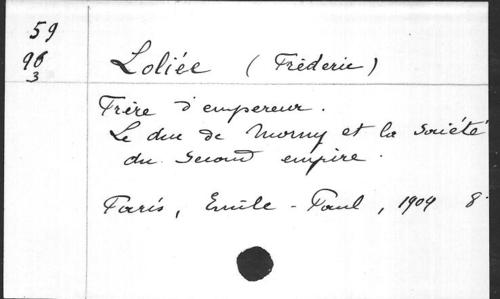 59
96
3
Loliée (Fréderic)
Frère d'empereur.
Le duc de Morny et la Société
du Second empire.
Paris, Emile-Paul, 1909 8°